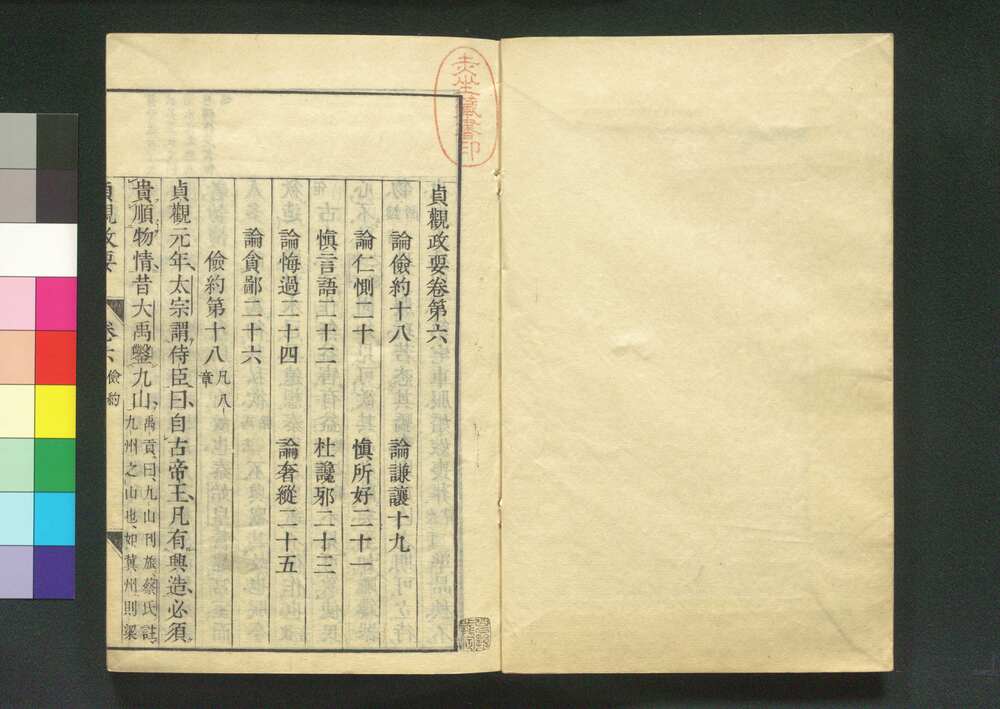 貞觀政要卷第六
論儉約十八 論謙讓十九
論仁惻二十 慎所好二十一
慎言語二十二 杜讒邪二十三
論悔過二十四 論奢縱二十五
論貪鄙二十六
儉約第十八 凡八章
貞觀元年太宗謂侍臣曰自古帝王凡有興造必須
貴順物情昔大禹鑿九山 禹貢曰、九山刊旅、蔡氏註、九州之山也、如冀州則梁
貞觀政要 卷六 儉約
藏書印